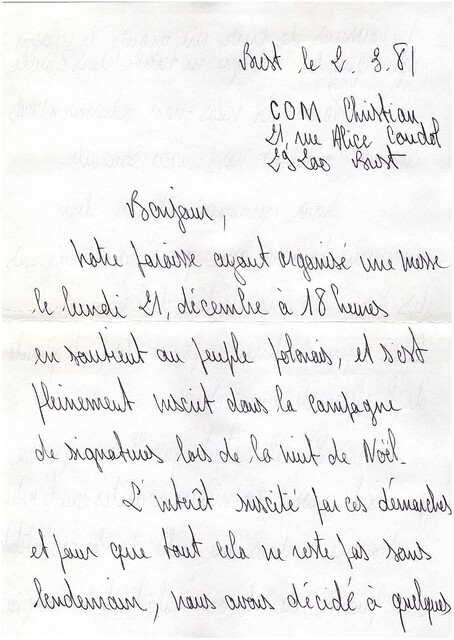 Brest le 2. 3. 81
COM Christian
21, rue Alice Coudol
29200 Brest
Bonjour,
Notre paroisse ayant organisé une messe
le lundi 21, décembre à 18 heures
en soutient au peuple polonais, et s'est
pleinement inscrit dans la campagne
de signatures lors de la nuit de Noël.
L'intérêt suscité par ces démarches
et pour que tout cela ne reste pas sans
lendemain, nous avons décidé à quelques